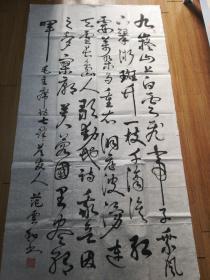 九嶷山上白云飞帝子乘风
下翠微斑竹一枝千滴泪红
霞万朵百重衣洞庭波涌连
天雪长岛人歌动地诗我欲因
之梦寥廓芙蓉国里尽朝
晖 毛主席诗七律答友人 范云和书